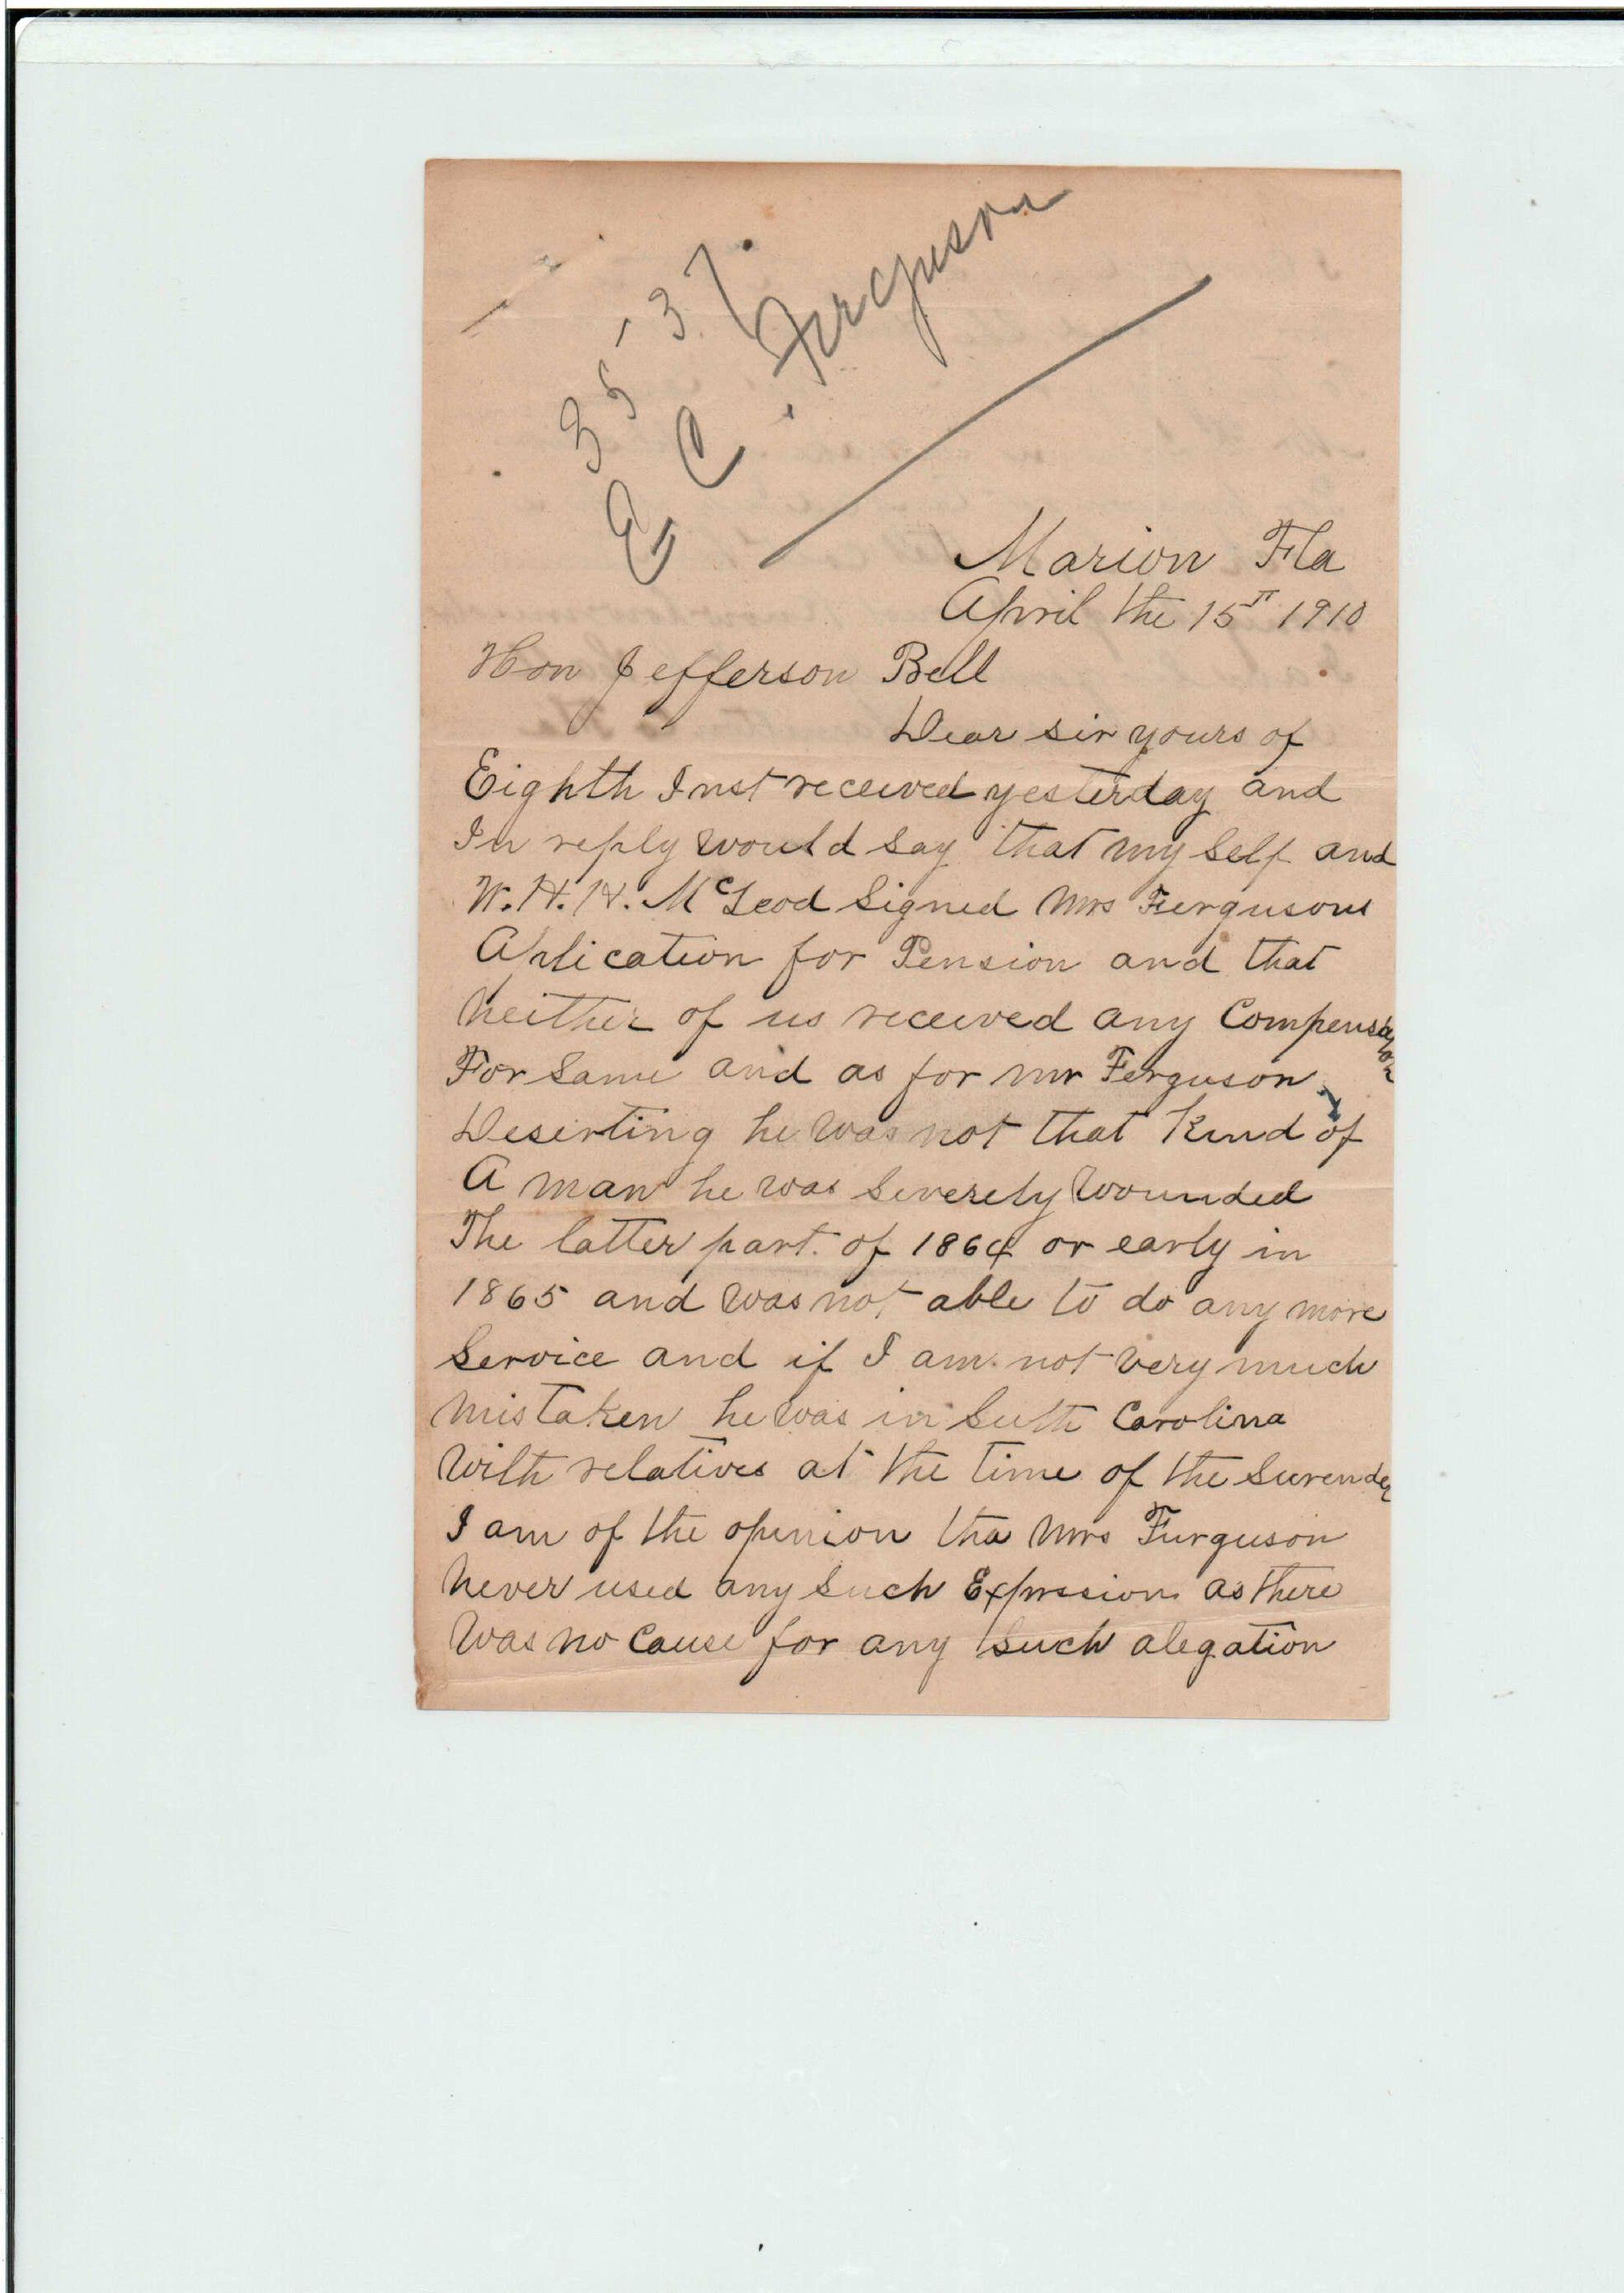 3537.
E C. Ferguson
Marion Fla
April the 15th 1910
Hon Jefferson Bell
Dear sir yours of
Eighth Inst received yesterday and
In reply would say that my self and
W. H. H. McLeod Signed Mrs Fergusons
Aplication for Pension and that
Neither of us received any Compensation
For Same and as for mr Ferguson
Deserting he was not that Kind of
A man he was Severely Wounded
The latter part. of 1864 or early in
1865 and was not able to do any more
Service and if I am not very much
Mistaken he was in Suth Carolina
With relatives at the time of the Surender
I am of the opinion tha Mrs Furguson
Never used any Such Expression as there
Was no Cause for any Such alegation